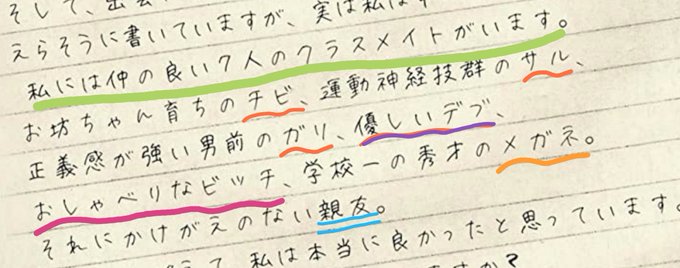 そして、出会
えらそうに書いていますが、実は私は
私には仲の良い7人のクラスメイトがいます。
お坊ちゃん育ちのチビ、運動神経技群のサル、
正義感が強い男前のガリ、優しいデブ、
おしゃべりなビッチ、学校一の秀才のメガネ。
それにかけがえのない親友。
て、私は本当に良かったと思っています。
ますか?